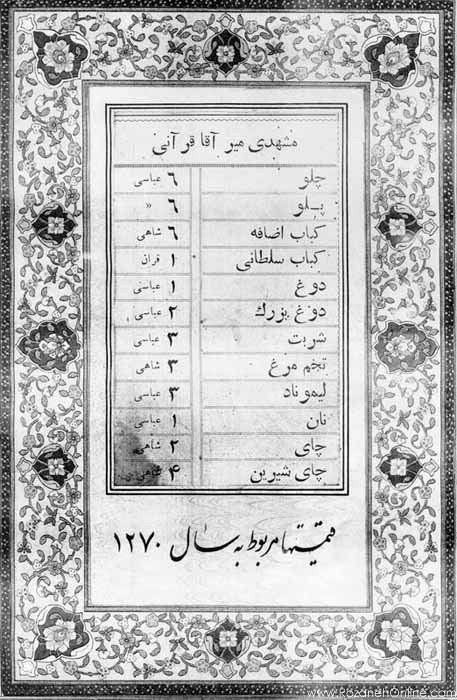 مشهدی میر آقا قرآنی
چلو ۶ عباسی
پلو ۶ »
کباب اضافه ۶ شاهی
کباب سلطانی ۱ قران
دوغ ۱ عباسی
دوغ بزرك ۲ عباسی
شربت ۳ عباسی
تخم مرغ ۳ شاهی
لیموناد ۳ عباسی
نان ۱ عباسی
چای ۲ شاهی
چای شیرین ۴ شاهی
قیمتها مربوط به سال ۱۲۷۰
www.RozanehOnline.com